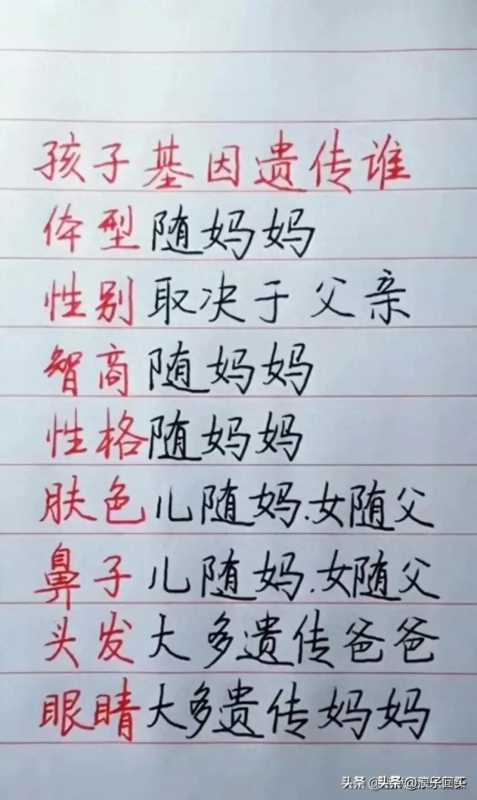 孩子基因遗传谁
体型随妈妈
性别取决于父亲
智商随妈妈
性格随妈妈
肤色儿随妈.女随父
鼻子儿随妈.女随父
头发大多遗传爸爸
眼睛大多遗传妈妈
头条 @浪子回买